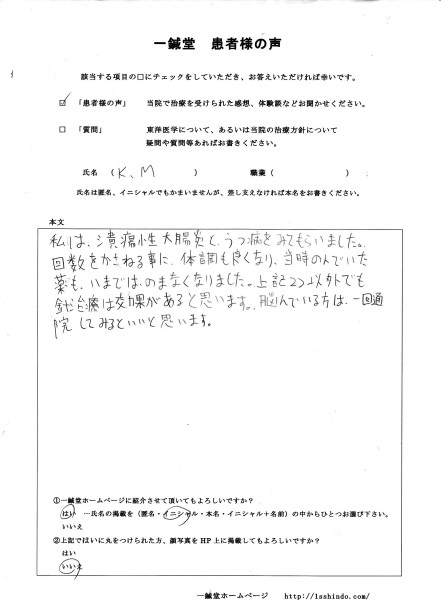 一鍼堂 患者様の声
該当する項目の□にチェックをしていただき、お答えいただければ幸いです。
☑ 「患者様の声」 当院で治療を受けられた感想、体験談などお聞かせください。
□ 「質問」 東洋医学について、あるいは当院の治療方針について
疑問や質問等あればお書きください。
氏名 ( K、M ) 職業 ( )
氏名は匿名、イニシャルでもかまいませんが、差し支えなければ本名をお書きください。
本文
私は、潰瘍性大腸炎と、うつ病をみてもらいました。
回数をかさねる事に、体調も良くなり、当時のんでいた
薬も、いまでは、のまなくなりました。上記2つ以外でも
鍼治療は効果があると思います。悩んでいる方は、一回通
院してみるといいと思います。
①一鍼堂ホームページに紹介させて頂いてもよろしいですか?
はい …氏名の掲載を(匿名・イニシャル・本名・イニシャル+名前)の中からひとつお選び下さい。
いいえ
②上記ではいに丸をつけられた方、顔写真をHP上に掲載してもよろしいですか?
はい
いいえ
一鍼堂ホームページ http://1sshindo.com/